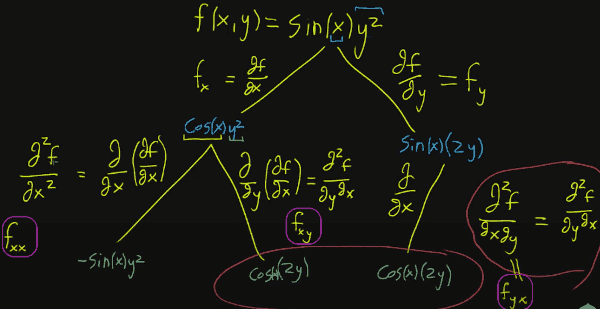 f(x,y) = Sin(x)y²
f_x = ∂f/∂x
∂f/∂y = f_y
Cos(x)y²
Sin(x)(2y)
∂²f/∂x² = ∂/∂x (∂f/∂x)
∂/∂y (∂f/∂x) = ∂²f/∂y∂x
∂/∂x
∂²f/∂x∂y = ∂²f/∂y∂x
f_xx
f_xy
-Sin(x)y²
(2y)
Cos(x)(2y)
f_yx